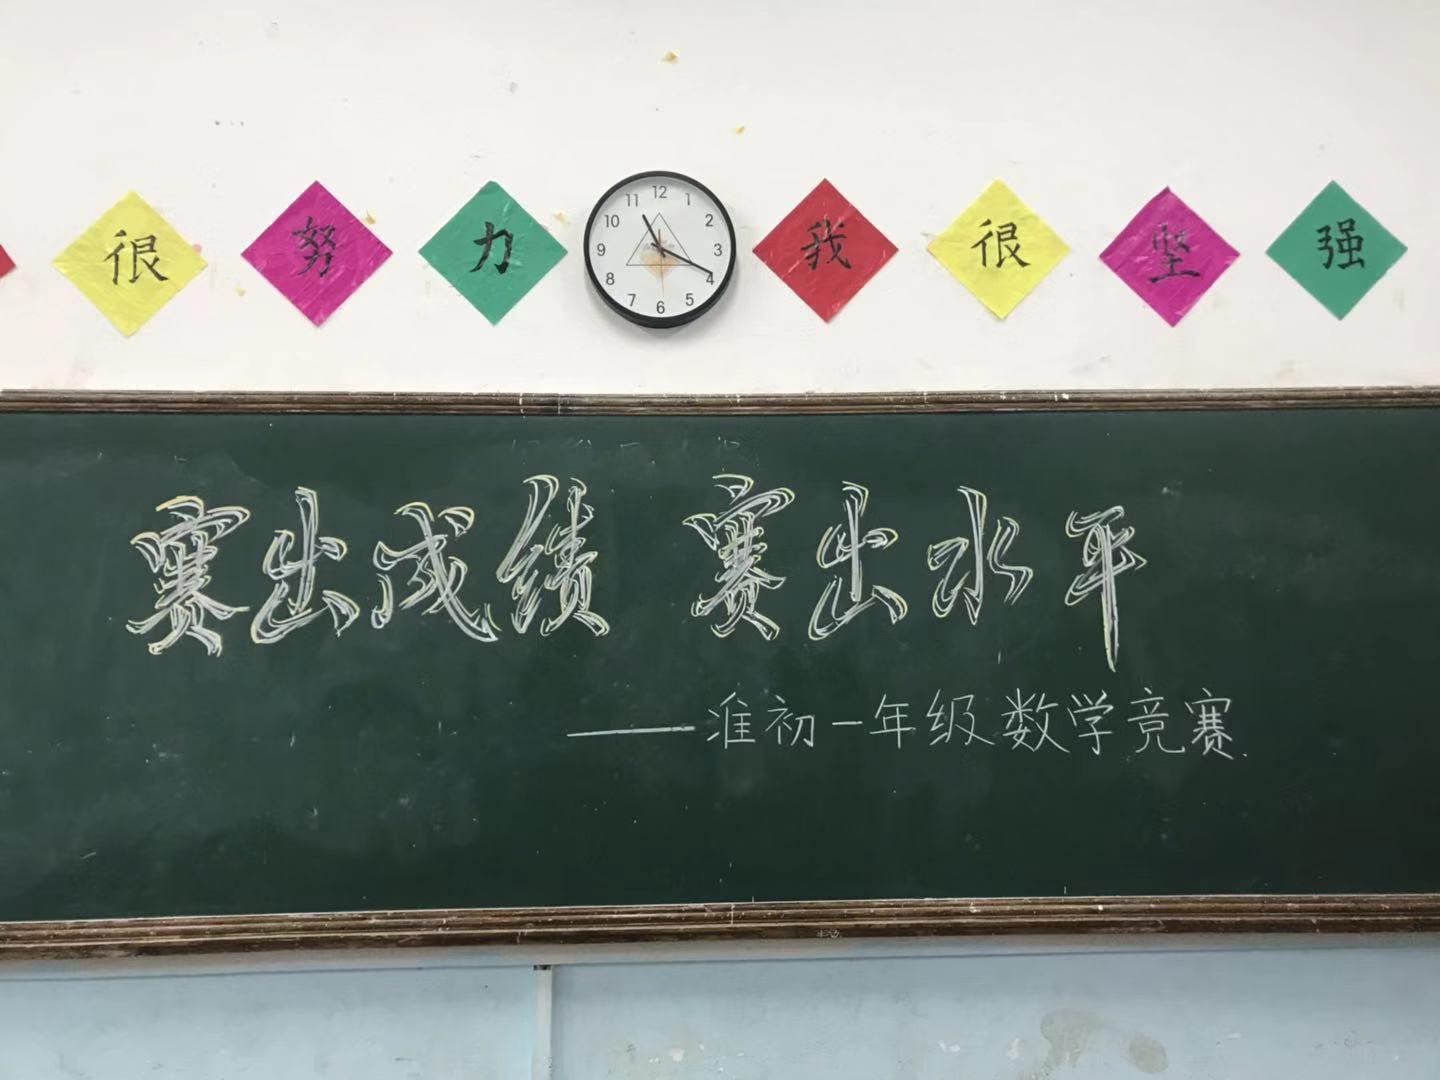 很努力 我很坚强
12
1
2
3
4
5
6
7
8
9
10
11
赛出成绩 赛出水平
——准初一年级数学竞赛